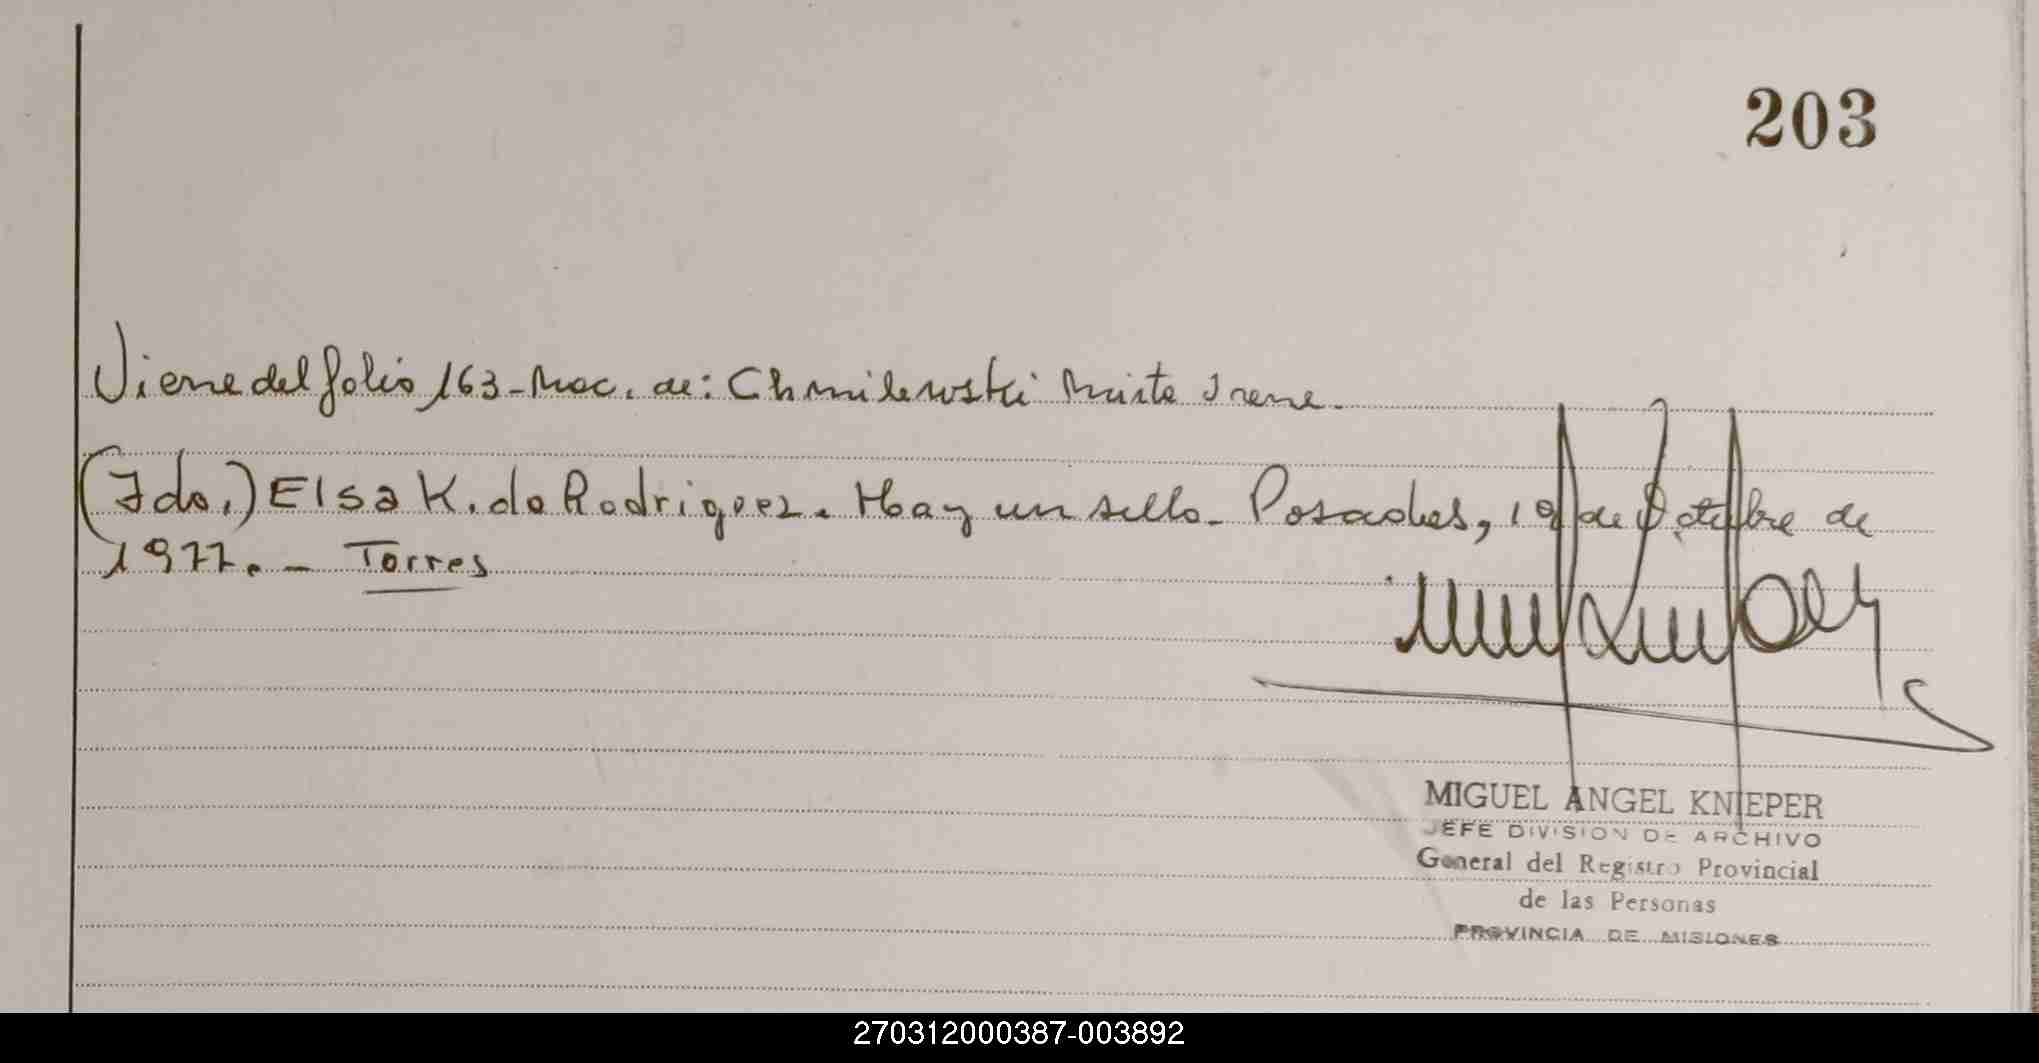 203
Viene del folio 163 - Nac. de: Chmilewski Mirta Irene.
(Fdo.) Elsa K. de Rodriguez. Hay un sello - Posadas, 19 de Octubre de
1977. - Torres
MIGUEL ANGEL KNIEPER
JEFE DIVISION DE ARCHIVO
General del Registro Provincial
de las Personas
PROVINCIA DE MISIONES
270312000387-003892